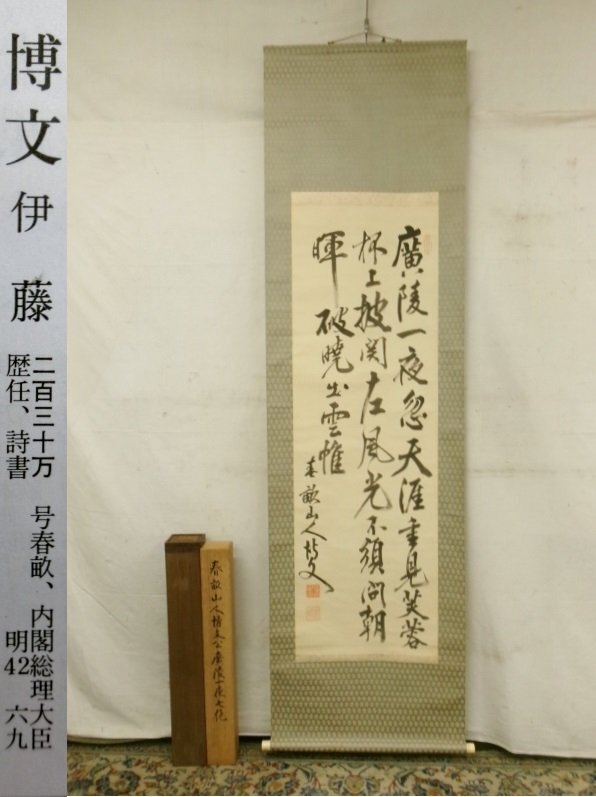 博文 伊藤
二百三十万 号春畝、内閣総理大臣
歴任、詩書 明42 六九
廣陵一夜忽天涯重見芙蓉
杯上披関左風光不須問朝
暉破曉出雲帷
春畝山人博文
春畝山人博文公廣陵一夜七絶